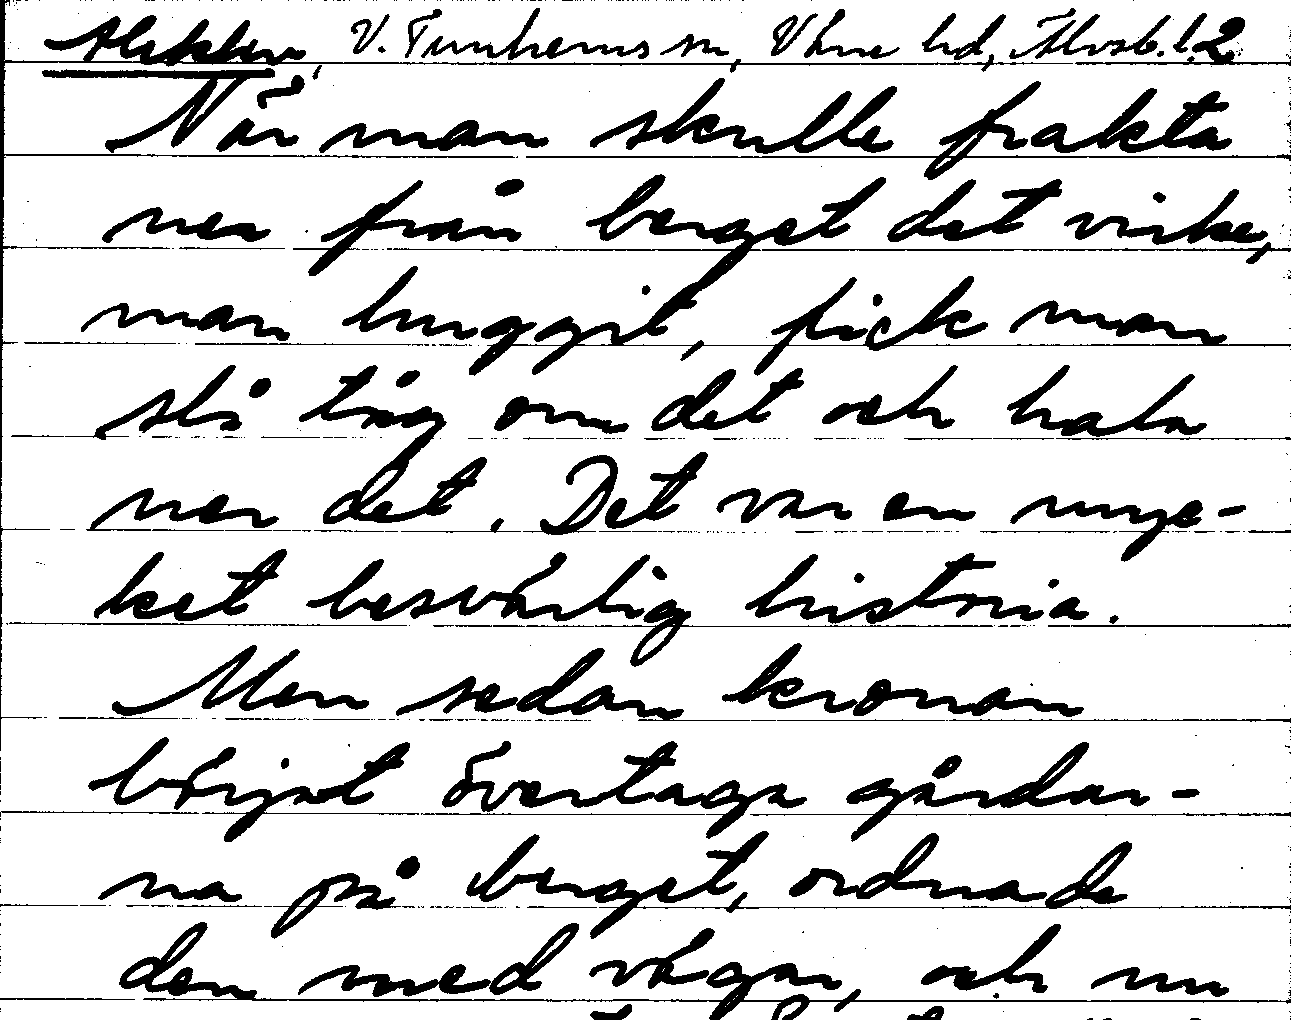 V. Tunhems sn, Väne hd, Älvsb. l. 2
När man skulle frakta
ner från berget det virke,
man huggit, fick man
slå tåg om det och hala
ner det. Det var en myc-
ket besvärlig historia.
Men sedan kronan
börjat övertaga gårdar-
na på berget, ordnade
den med vägar, och nu